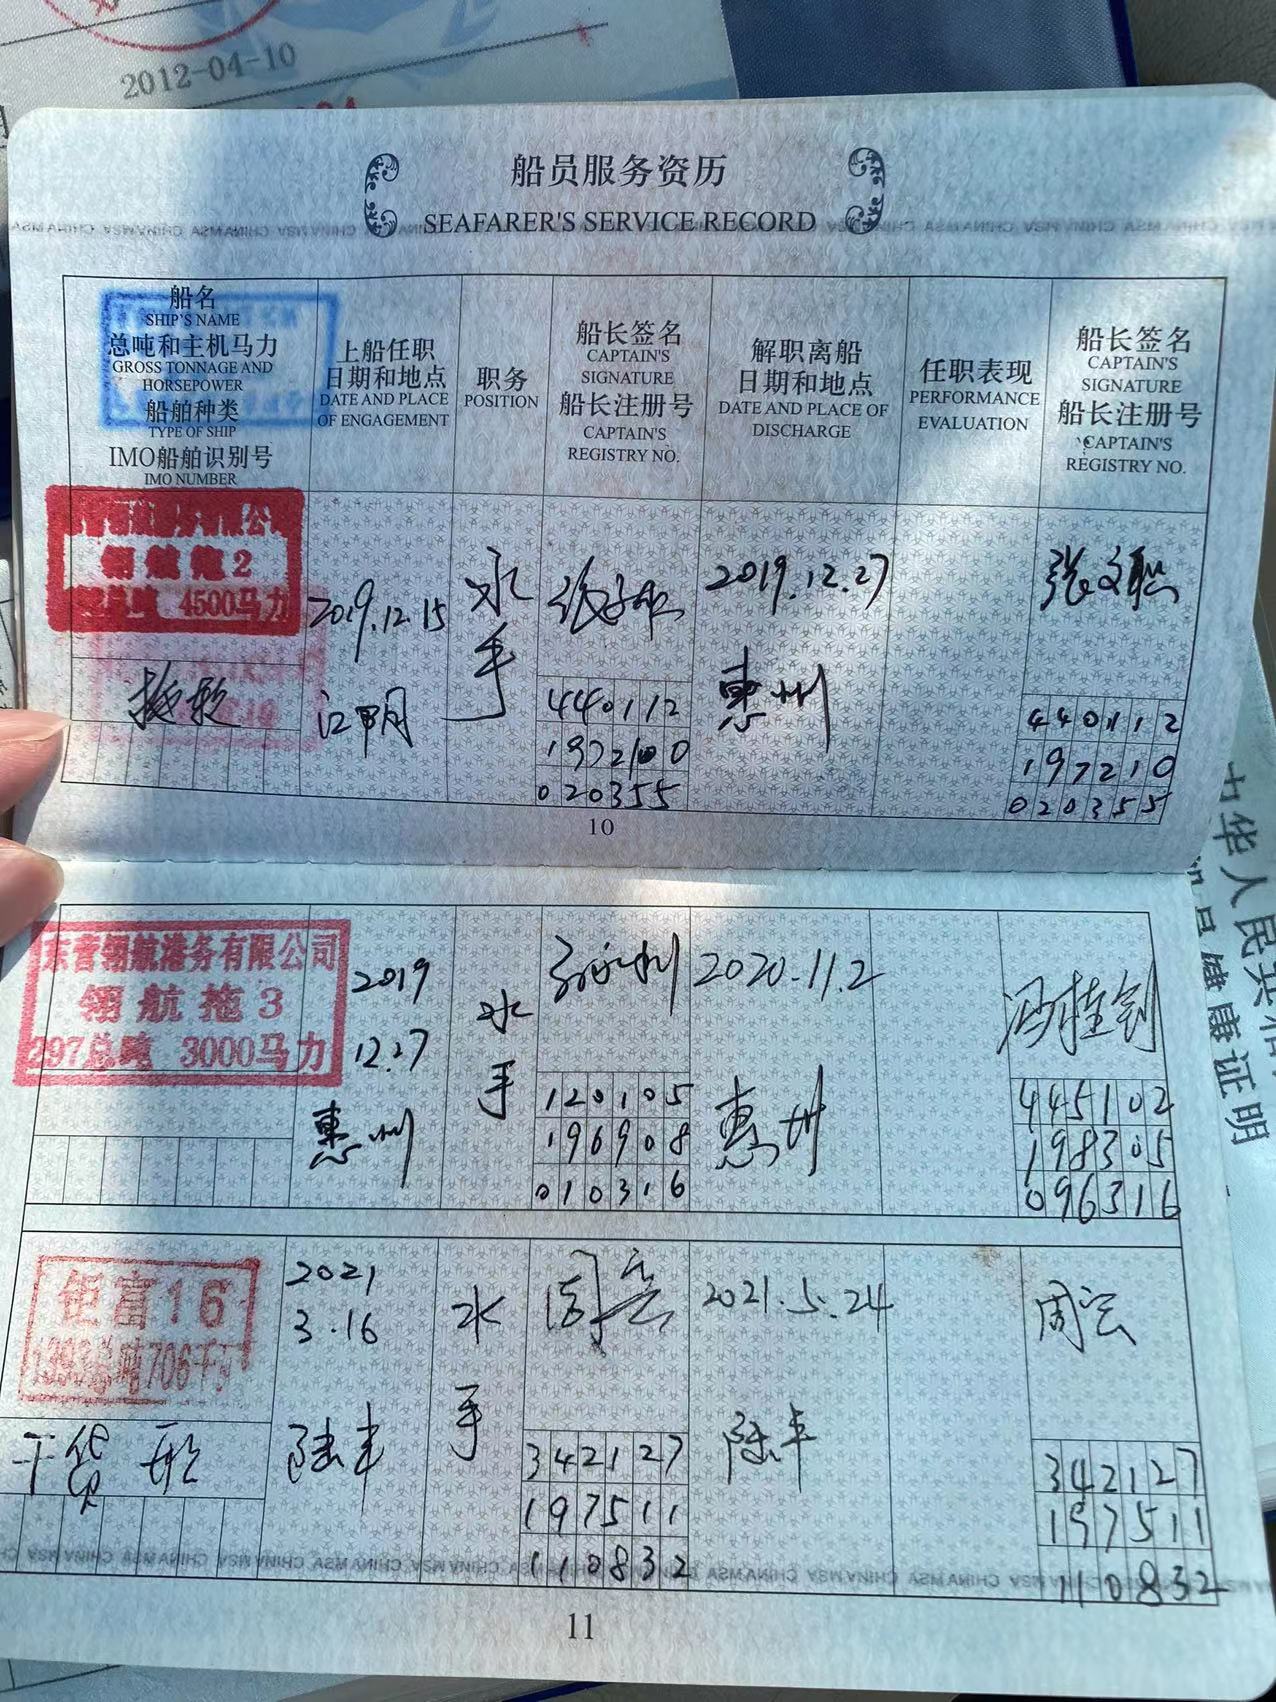 2012-04-10
船员服务资历
SEAFARER'S SERVICE RECORD
船名
SHIP'S NAME
总吨和主机马力
GROSS TONNAGE AND
HORSEPOWER
船舶种类
TYPE OF SHIP
IMO船舶识别号
IMO NUMBER
上船任职
日期和地点
DATE AND PLACE
OF ENGAGEMENT
职务
POSITION
船长签名
CAPTAIN'S
SIGNATURE
船长注册号
CAPTAIN'S
REGISTRY NO.
解职离船
日期和地点
DATE AND PLACE OF
DISCHARGE
任职表现
PERFORMANCE
EVALUATION
船长签名
CAPTAIN'S
SIGNATURE
船长注册号
CAPTAIN'S
REGISTRY NO.
领航拖2
总吨 4500马力
2019.12.15
水手
440112
197210
020355
2019.12.27
惠州
张文职
440112
197210
020355
10
东营翎航港务有限公司
翎航拖3
297总吨 3000马力
2019
12.27
惠州
水手
120105
196908
010316
2020.11.2
惠州
冯桂钊
445102
198305
096316
钜富16
干货船
2021
3.16
陆丰
水手
周云
342127
197511
110832
2021.5.24
陆丰
周云
342127
197511
110832
11
华人民共和
员健康证明